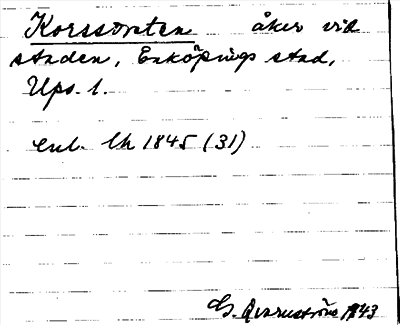 Korssorten åker vid
staden, Enköpings stad,
Ups. l.
enl. lh 1845 (31)
G. Qvarnström 1943